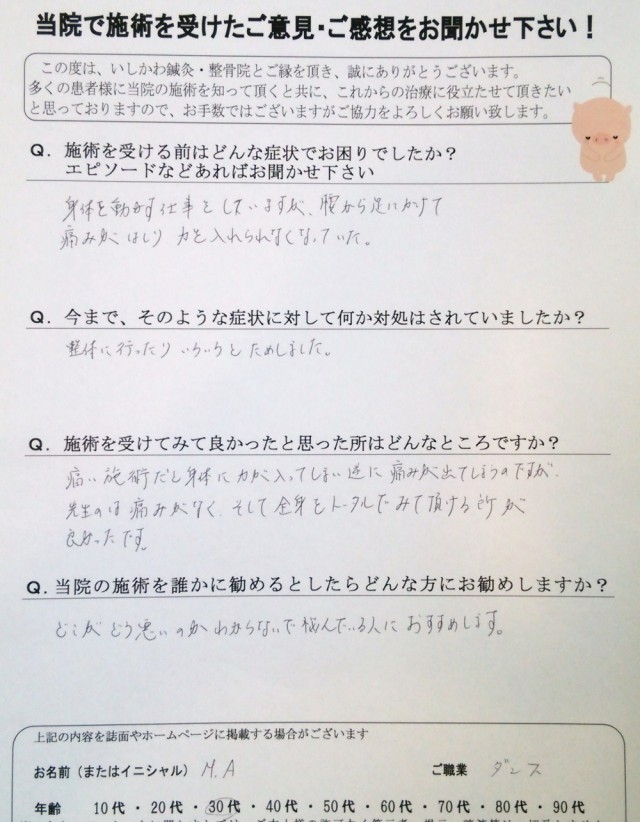 当院で施術を受けたご意見・ご感想をお聞かせ下さい！
この度は、いしかわ鍼灸・整骨院とご縁を頂き、誠にありがとうございます。
多くの患者様に当院の施術を知って頂くと共に、これからの治療に役立たせて頂きたい
と思っておりますので、お手数ではございますがご協力をよろしくお願い致します。
Q. 施術を受ける前はどんな症状でお困りでしたか？
エピソードなどあればお聞かせ下さい
身体を動かす仕事をしていますが、腰から足にかけて
痛みがはしり力を入れられなくなっていた。
Q. 今まで、そのような症状に対して何か対処はされていましたか？
整体に行ったりいろいろとためしました。
Q. 施術を受けてみて良かったと思った所はどんなところですか？
痛い施術だと身体に力が入ってしまい逆に痛みが出てしまうのですが、
先生のは痛みがなく、そして全身をトータルでみて頂ける所が
良かったです。
Q. 当院の施術を誰かに勧めるとしたらどんな方にお勧めしますか？
どこがどう悪いのかわからないで悩んでいる人におすすめします。
上記の内容を誌面やホームページに掲載する場合がございます
お名前（またはイニシャル） M.A ご職業 ダンス
年齢 10代・20代・30代・40代・50代・60代・70代・80代・90代